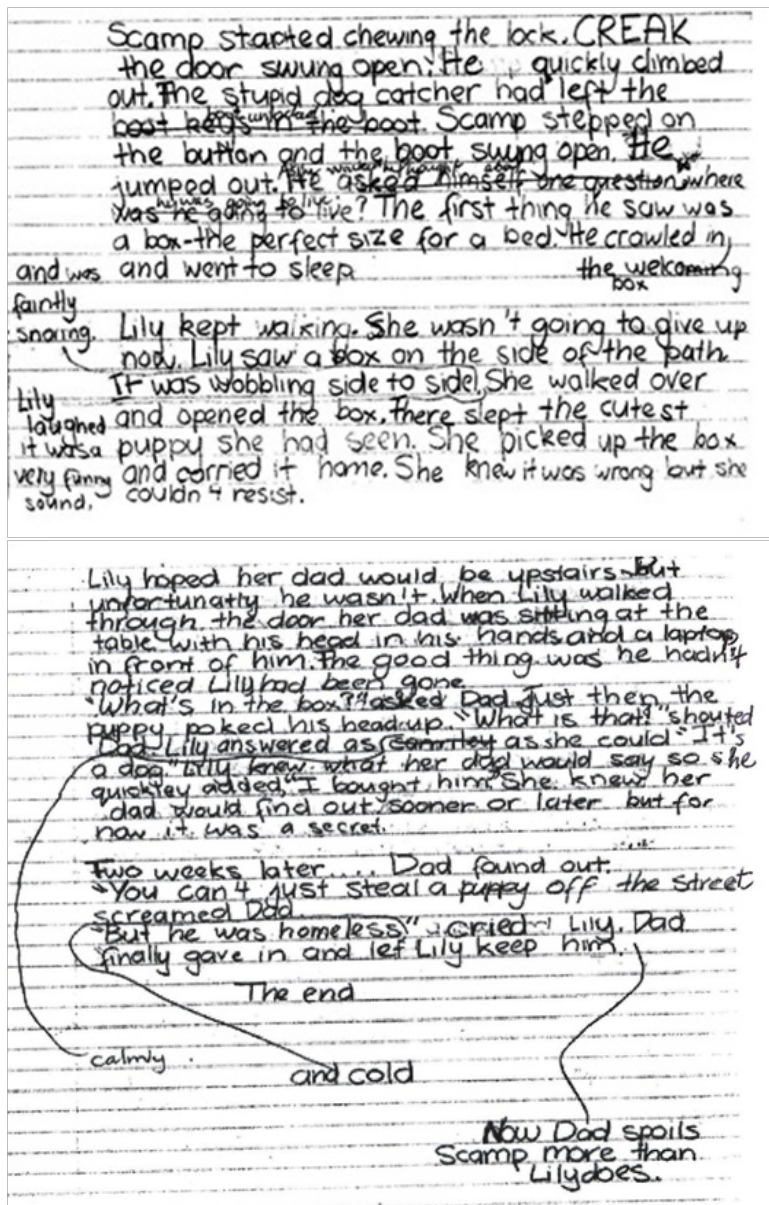 Scamp started chewing the lock. CREAK
the door swung open. He quickly climbed
out. The stupid dog catcher had left the
boot unlocked
boot keys in the boot. Scamp stepped on
the button and the boot swung open. He
jumped out. He asked himself one question, where
he was going to live
was he going to live? The first thing he saw was
a box-the perfect size for a bed. He crawled in
the welcoming
box
and went to sleep
and was
faintly
snoring.
Lily kept walking. She wasn't going to give up
now. Lily saw a box on the side of the path.
It was wobbling side to side. She walked over
and opened the box. There slept the cutest
puppy she had seen. She picked up the box
and carried it home. She knew it was wrong but she
couldn't resist.
Lily
laughed
it was a
very funny
sound.
Lily hoped her dad would be upstairs but
unfortunatly he wasn't. When Lily walked
through the door her dad was sitting at the
table with his head in his hands and a laptop
in front of him. The good thing was he hadn't
noticed Lily had been gone
"What's in the box?" asked Dad. Just then the
puppy poked his head up. "What is that?" shouted
Dad. Lily answered as as she could "It's
a dog." Lily knew what her dad would say so she
quickley added, "I bought him." She knew her
dad would find out sooner or later but for
now it was a secret.
Two weeks later.... Dad found out.
"You can't just steal a puppy off the street
screamed Dad.
"But he was homeless" cried Lily. Dad
finally gave in and let Lily keep him.
The end
calmly
and cold
Now Dad spoils
Scamp more than
Lily does.